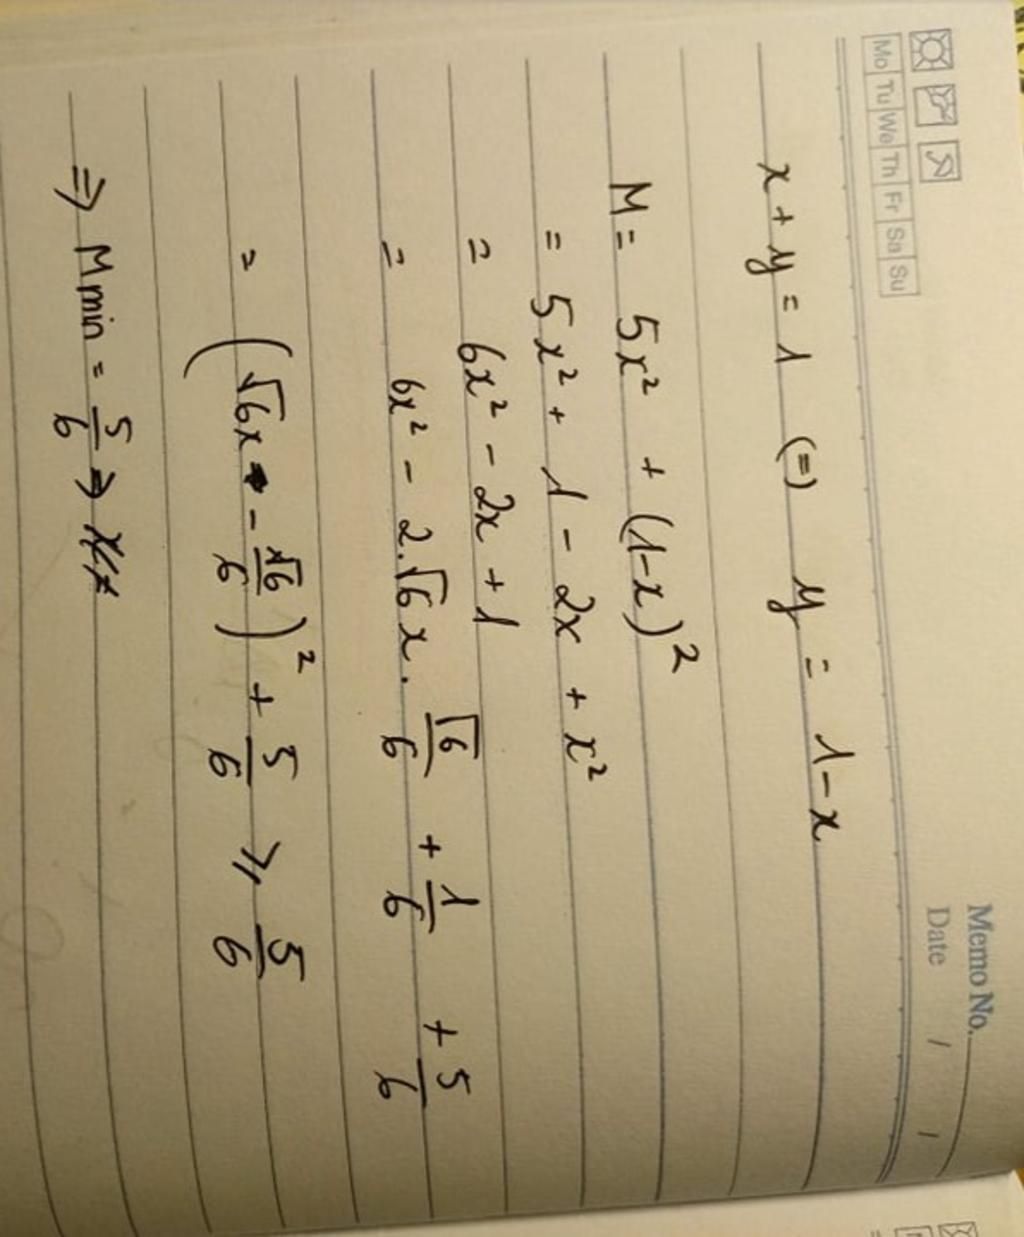 Memo No.
Mo Tu We Th Fr Sa Su
Date / /
x + y = 1 (=) y = 1-x
M = 5x² + (1-x)²
= 5x² + 1 - 2x + x²
= 6x² - 2x + 1
= 6x² - 2.√6x . √6/6 + 1/6 + 5/6
= (√6x - √6/6)² + 5/6 ⩾ 5/6
⇒ Mmin = 5/6 ⇒